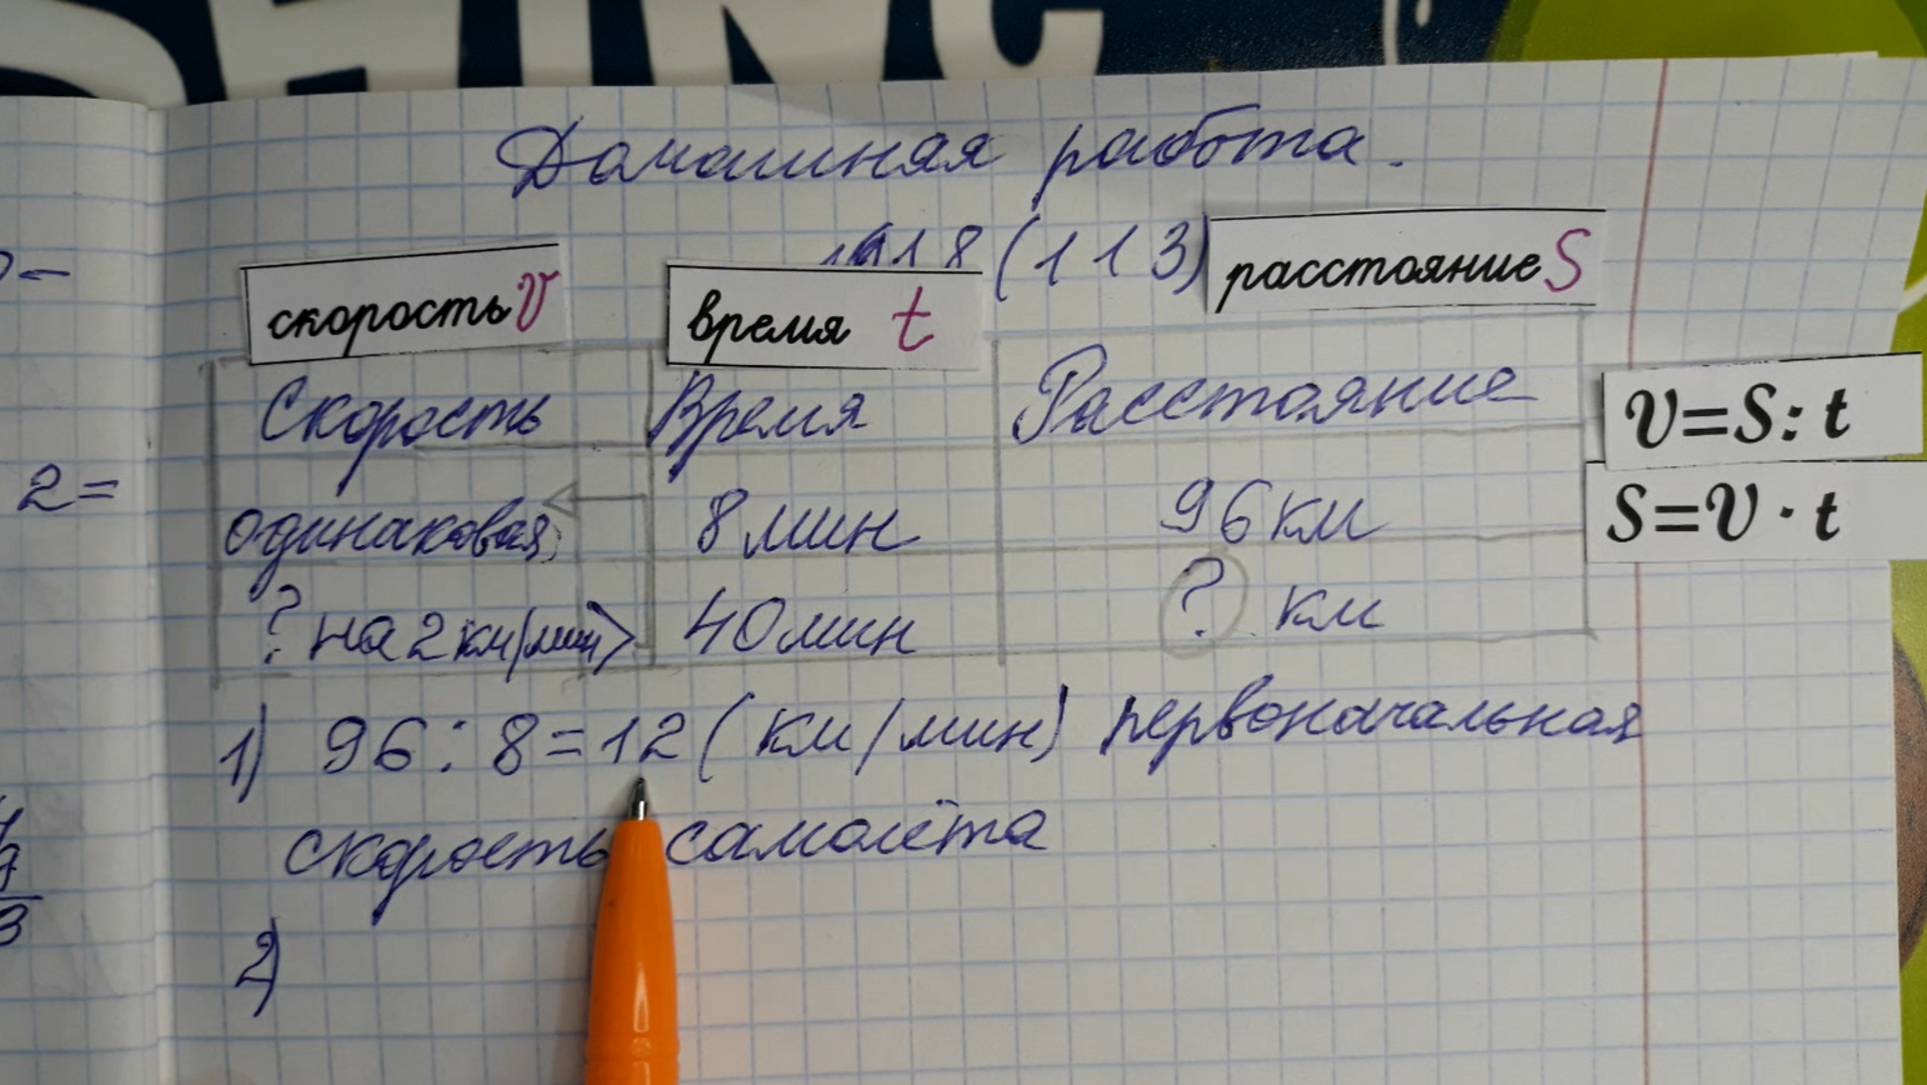 Домашняя работа.
18 (113)
скорость V
время t
расстояние S
Скорость Время Расстояние
одинаковая 8 мин 96 км
? на 2 км/мин > 40 мин ? км
V=S:t
S=V·t
2=
1) 96:8=12 (км/мин) первоначальная
скорость самолёта
2)
3